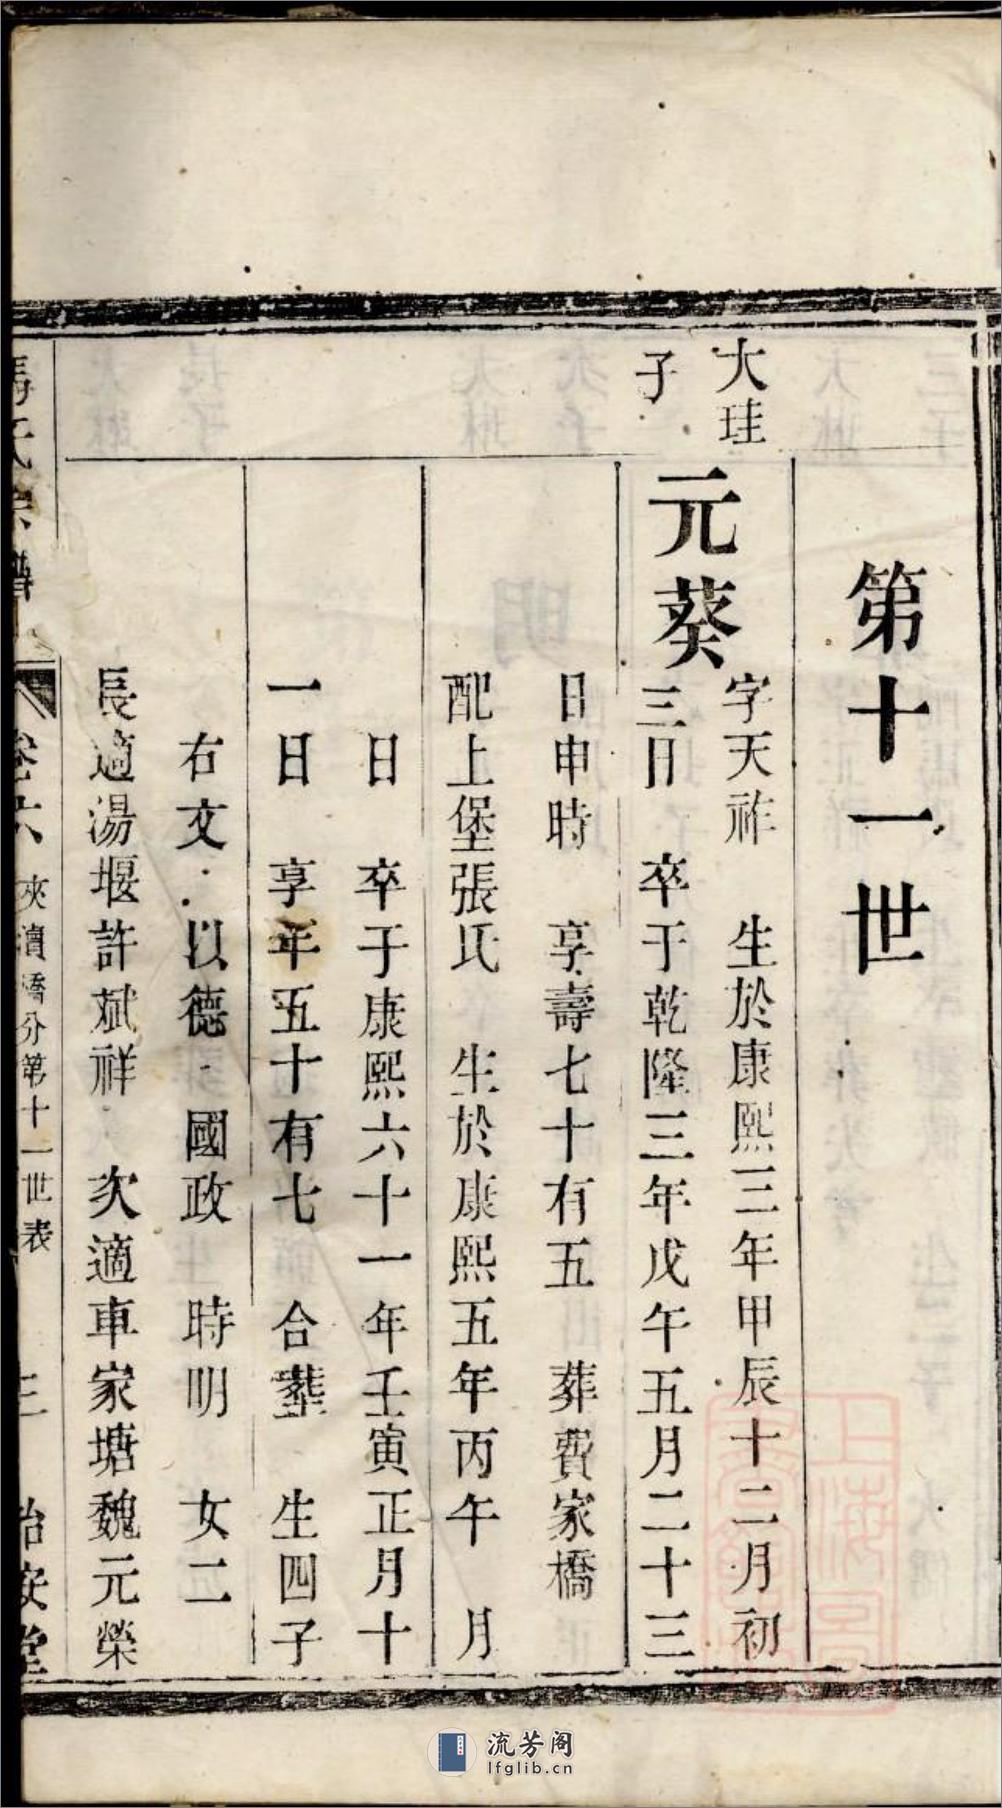 第十一世
大珪
子
元葵
字天祚 生於康熙三年甲辰十二月初
三日 卒于乾隆三年戊午五月二十三
日申時 享壽七十有五 葬費家橋
配上堡張氏 生於康熙五年丙午 月
日 卒于康熙六十一年壬寅正月十
一日 享年五十有七 合葬 生四子
右文 以德 國政 時明 女二
長適湯堰許斌祥 次適車家塘魏元榮
氏宗譜 卷六 夾瀆橋分第十一世表 三 怡安堂
流芳阁
lfglib.cn